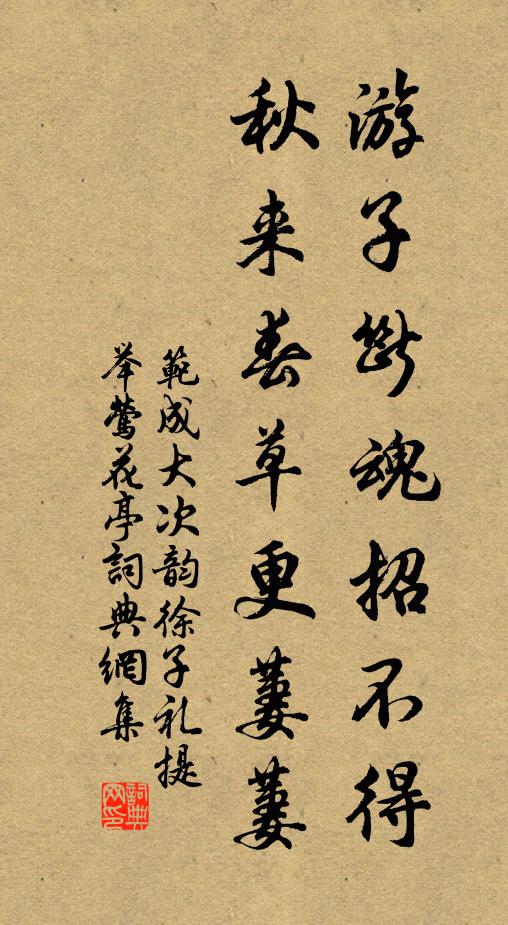 游子断魂招不得
秋来春草更萋萋
範成大次韵徐子礼提
举莺花亭詞典網集
詞典
网印